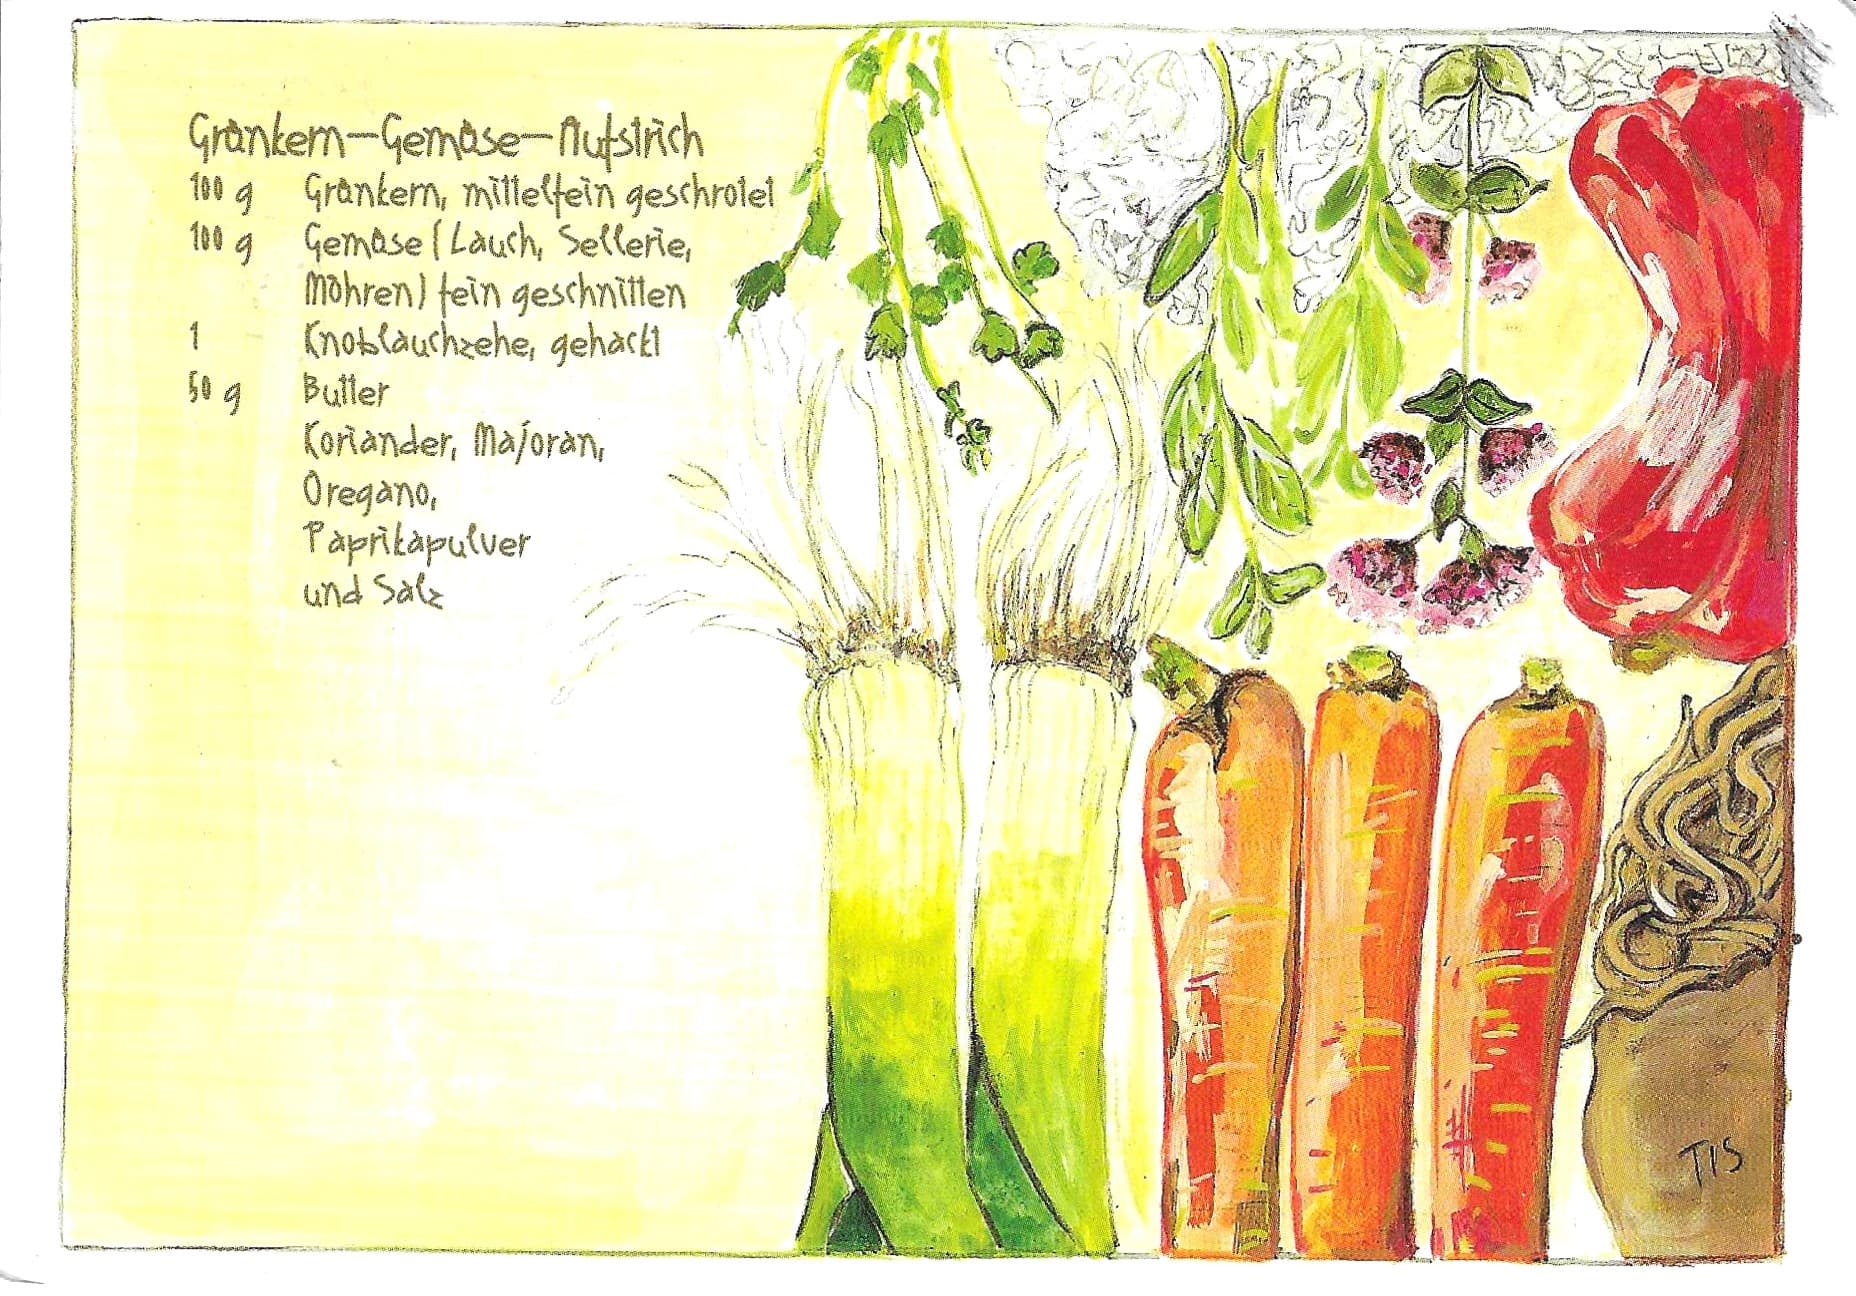 Grünkern-Gemüse-Aufstrich
100 g Grünkern, mittelfein geschrotet
100 g Gemüse (Lauch, Sellerie,
Möhren) fein geschnitten
1 Knoblauchzehe, gehackt
50 g Butter
Koriander, Majoran,
Oregano,
Paprikapulver
und Salz
TIS